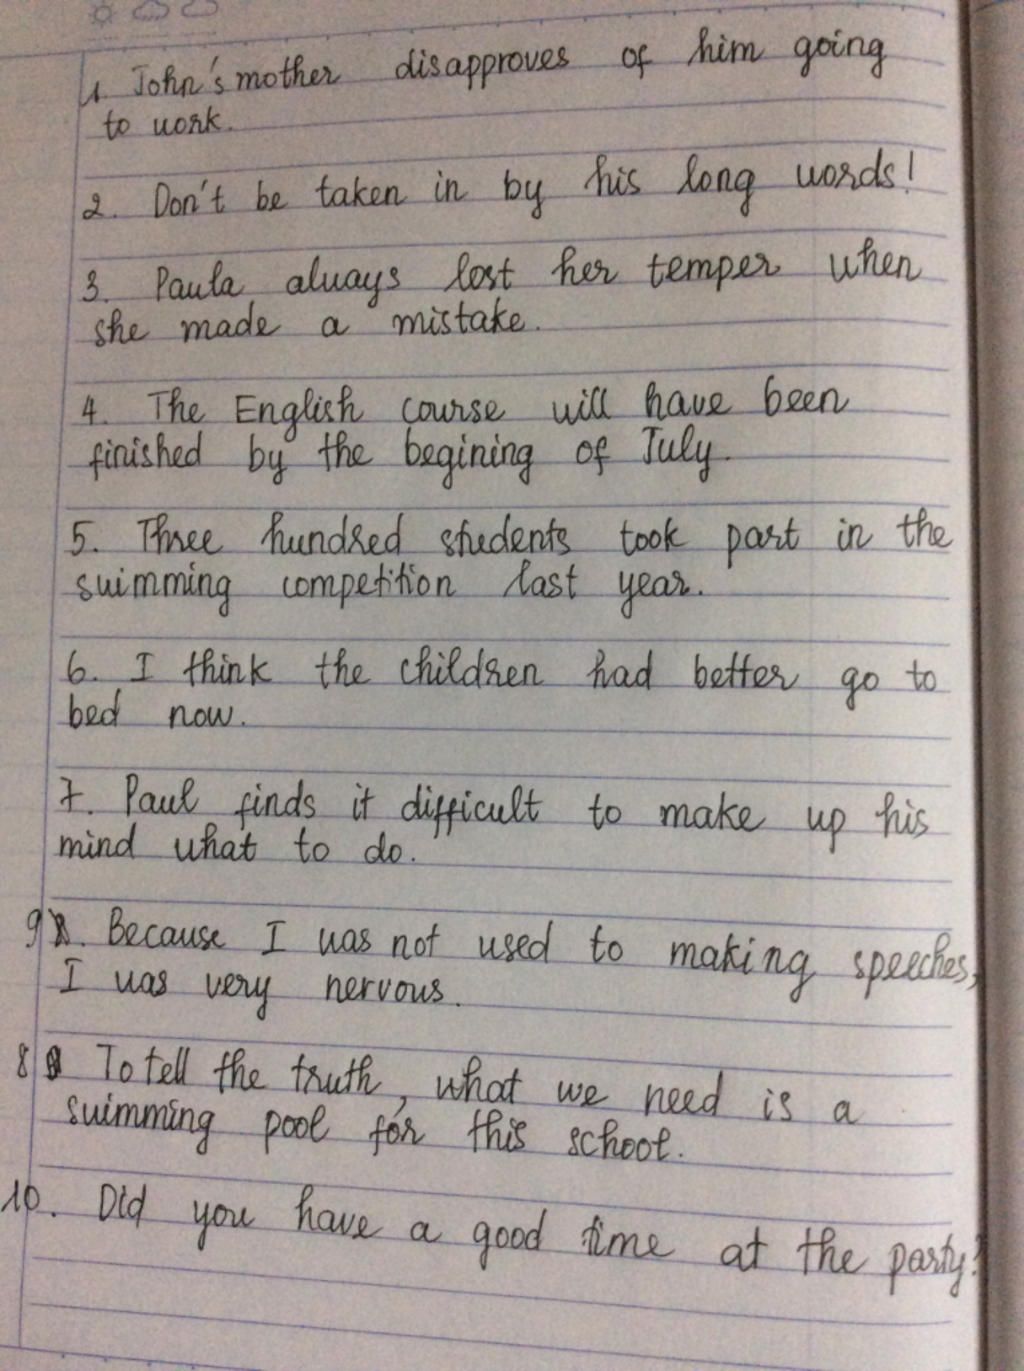 1. John's mother disapproves of him going
to work.
2. Don't be taken in by his long words!
3. Paula always lost her temper when
she made a mistake.
4. The English course will have been
finished by the begining of July.
5. Three hundred students took part in the
swimming competition last year.
6. I think the children had better go to
bed now.
7. Paul finds it difficult to make up his
mind what to do.
9. Because I was not used to making speeches,
I was very nervous.
8. To tell the truth, what we need is a
swimming pool for this school.
10. Did you have a good time at the party?